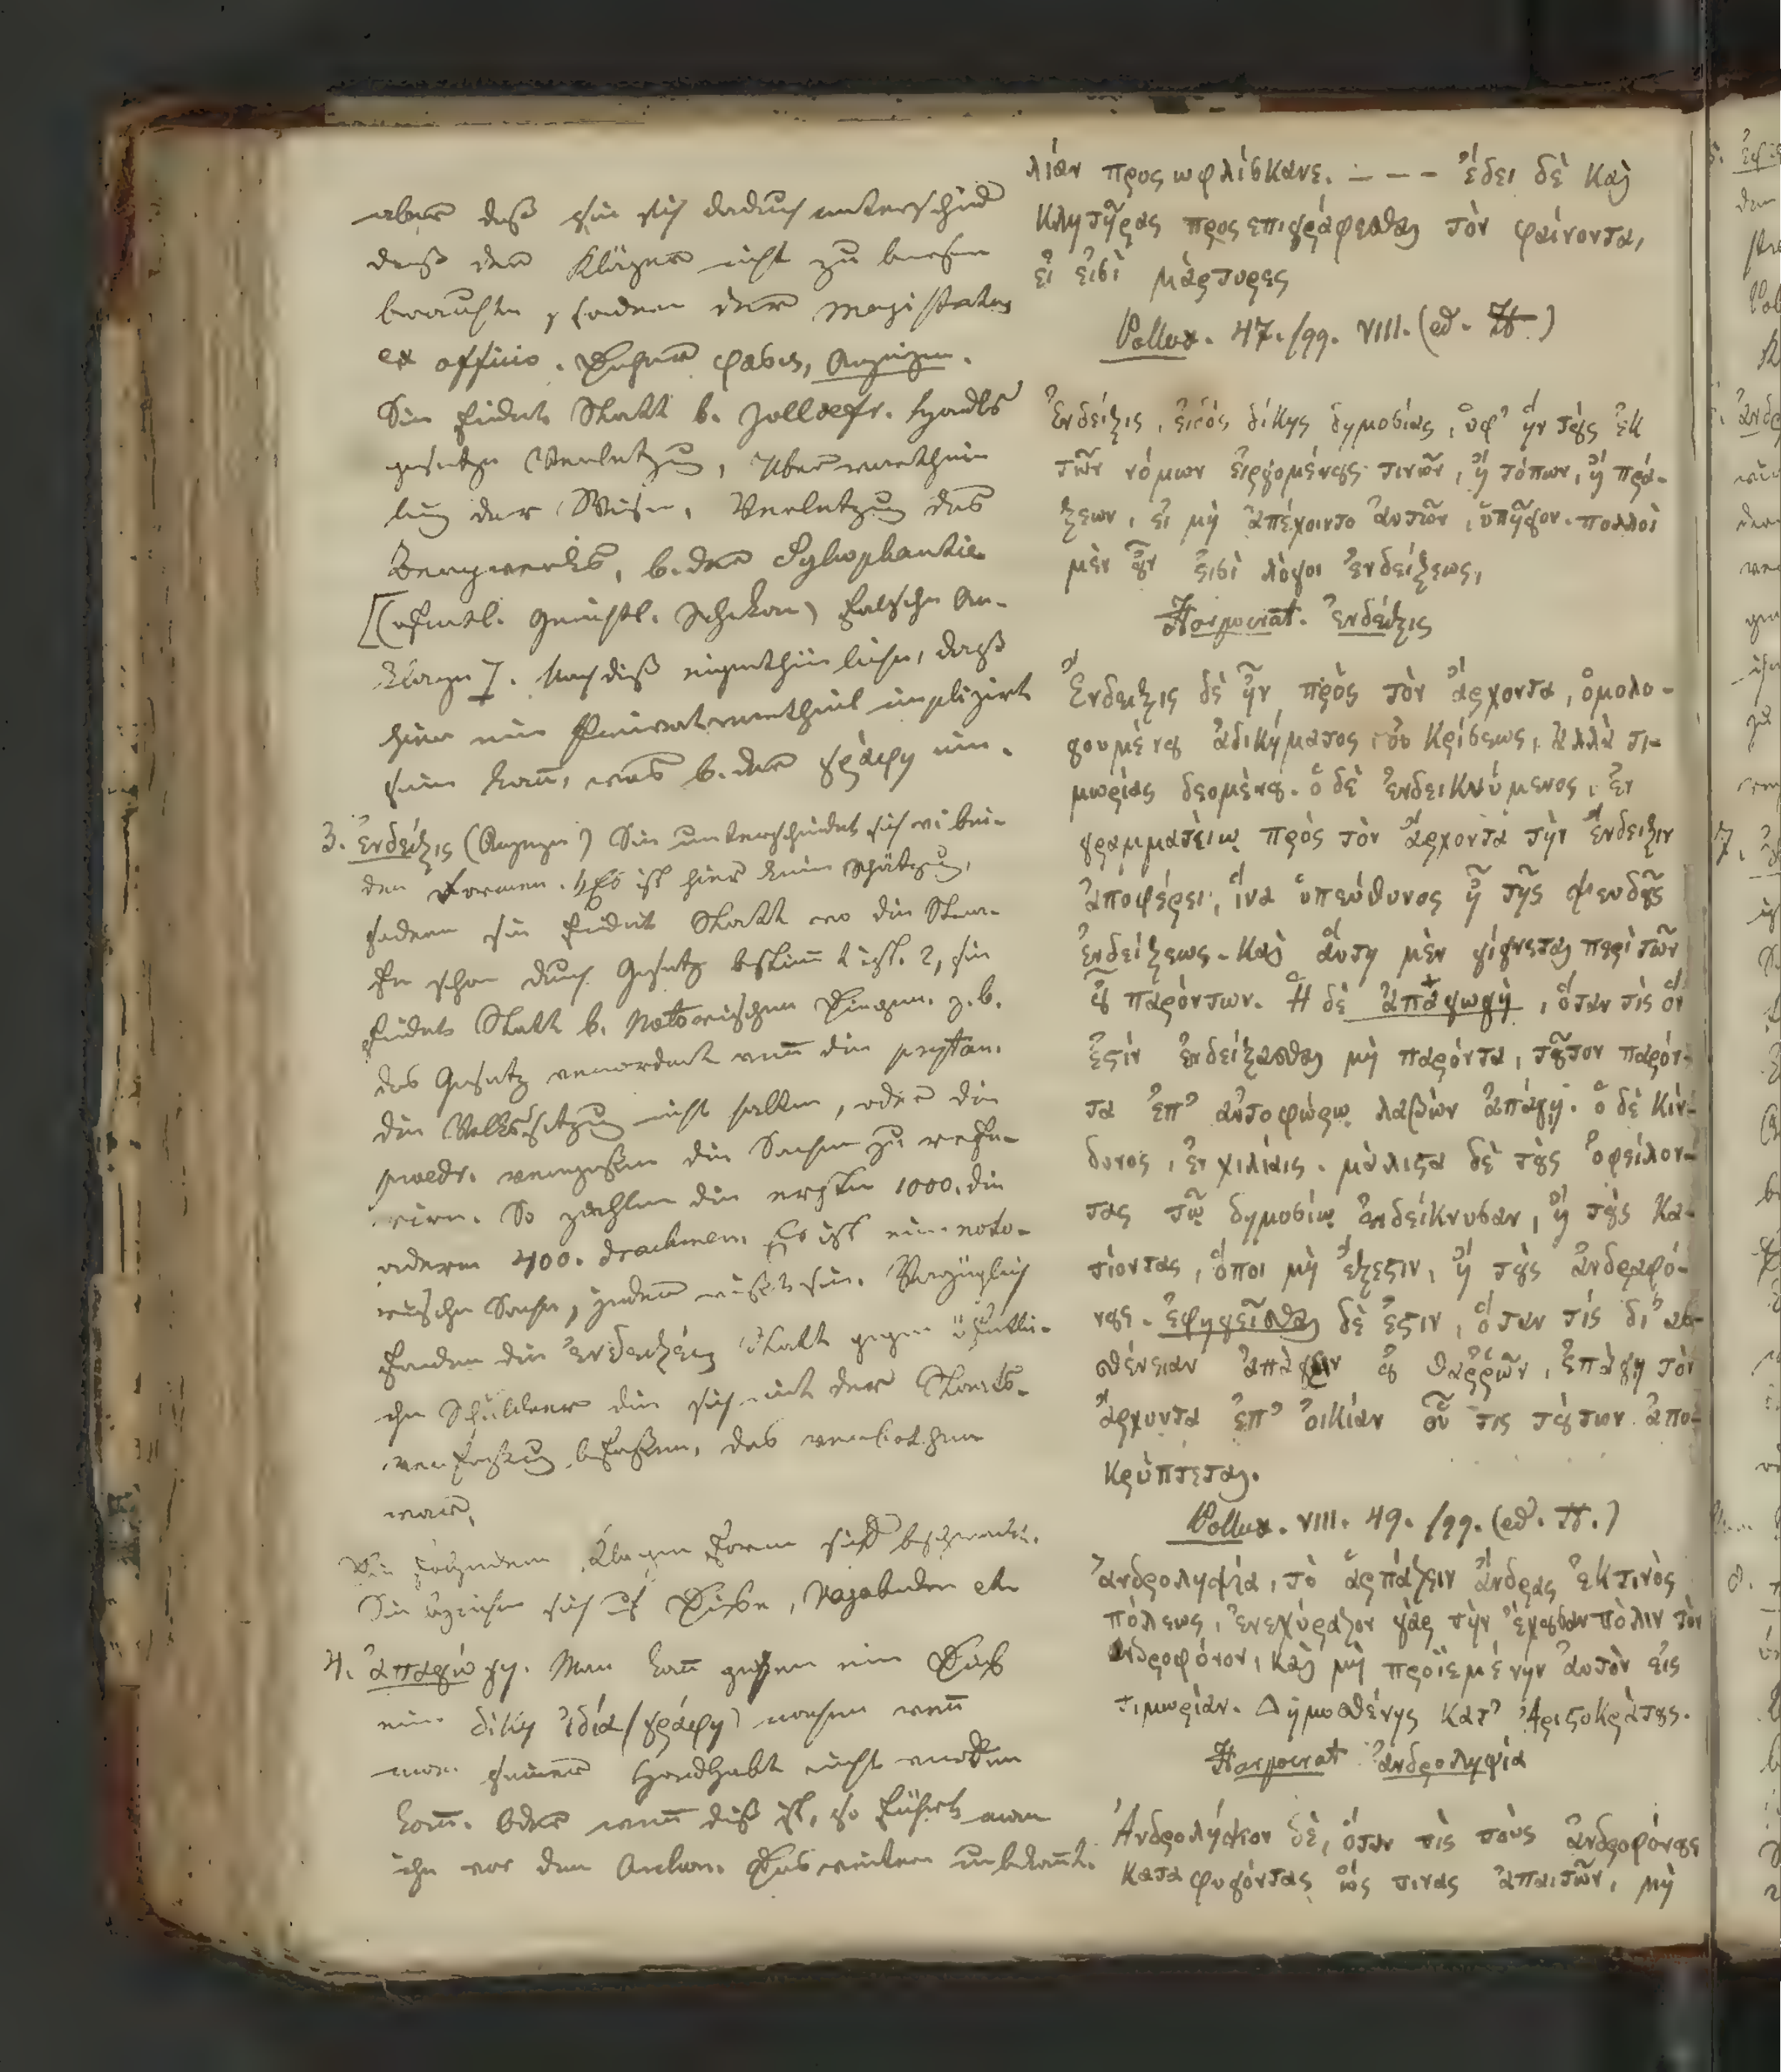 aber daß sie sich dadurch unterschied
daß der Kläger nicht zu beweisen
brauchte, sondern der Magistratus
ex officio. φασις, Anzeigen.
Sie findet Statt b. Zolldefr. Handels
gesetze Verletzung, Übervorthei
lung der Waisen, Verletzung des
Bergwerks, b. der Sykophantie
[(öffentl. gerichtl. Schikan) falsche An-
klage]. Noch diß eigenthümliche, daß
hier ein Privatvortheil implizirt
sein kann, was b. der γράφη nie.
3. Ἐνδείξις (Anzeige) Sie unterscheidet sich v. bei-
den Formen. 1, Es ist hier keine Schätzung,
sondern sie findet Statt wo die Stra-
fe schon durch Gesetz bestimmt ist. 2, sie
findet Statt b. Notorischen Dingen. z. b.
das Gesetz verordnet wenn die prytan.
die Volkssitzung nicht halten, oder die
proedr. vergeßen die Sachen zu refe-
riren. So zahlen die ersten 1000. die
andern 400. drachmen. Es ist eine noto-
rische Sache, jeder weißt sie. Vorzüglich
fanden die ἐνδείξεις Statt gegen öffentli-
che Schuldner die sich mit der Staats-
verfaßung befaßen, das verboten
war.
Die folgenden Klagen Formen sind beschränkt.
Sie beziehen sich auf Diebe, Vagabunden etc
4. ἀπαγώγη. Man kann gegen ein Dieb
eine δίκη ἰδία (γράφη) machen wenn
man seiner Handhabt nicht werden
kann. Oder wenn diß ist, so führt man
ihn vor den Archon. Das weitere unbekannt.
λίαν προςωφλίσκανε. – – – ἔδει δὲ καὶ
κλητῆρας προςεπιγράφεσθαι τὸν φαίνοντα,
εἰ εἰσὶ μάρτυρες
Pollux. 47. sqq. VIII. (ed. H.)
Ἐνδείξις, εἶδος δίκης δημοσίας, ὑφ’ ἣν τοὺς ἐκ
τῶν νόμων εἰργομένους τινῶν, ἢ τόπων, ἢ πρά-
ξεων, εἰ μὴ ἀπέχοιντο αὐτῶν, ὑπῆγον. πολλοὶ
μὲν οὖν εἰσὶ λόγοι ἐνδείξεως,
Harpocrat. Ἐνδείξις
Ἔνδειξις δὲ ἦν πρὸς τὸν ἄρχοντα, ὁμολο-
γουμένου ἀδικήματος, οὐ κρίσεως, ἀλλὰ τι-
μωρίας δεομένου. ὁ δὲ ἐνδεικνύμενος, ἐν
γραμματείῳ πρὸς τὸν ἄρχοντα τὴν ἔνδειξιν
ἀποφέρει, ἵνα ὑπεύθυνος ᾖ τῆς ψευδοῦς
ἐνδείξεως. καὶ αὕτη μὲν γίγνεται περὶ τῶν
οὐ παρόντων. Ἡ δὲ ἀπαγωγὴ, ὅταν τὶς ὃν
ἐστὶν ἐνδείξασθαι μὴ παρόντα, τοῦτον παρόν-
τα ἐπ’ αὐτοφώρῳ λαβὼν ἀπάγῃ. ὁ δὲ κίν-
δυνος, ἐν χιλίαις. μάλιστα δὲ τοὺς ὀφείλον-
τας τῷ δημοσίῳ ἐνδείκνυσαν, ἢ τοὺς κα-
τιόντας, ὅποι μὴ ἔξεστιν, ἢ τοὺς ἀνδροφό-
νους. ἐφηγεῖσθαι δὲ ἐστιν, ὅταν τίς δι’ ἀσ-
σθένειαν ἀπάγειν οὐ θαῤῥῶν, ἐπάγῃ τὸν
ἄρχοντα ἐπ’ οἰκίαν οὗ τις τούτων ἀπο-
κρύπτεται.
Pollux. VIII. 49. sqq. (ed. H.)
Ἀνδροληψία, τὸ ἁρπάζειν ἄνδρας ἐκ τινὸς
πόλεως, ἐνεχύραζον γὰρ τὴν ἔχουσαν πόλιν τὸν
ἀνδροφόνον, καὶ μὴ προϊεμένην αὐτὸν εἰς
τιμωρίαν. Δημοσθένης κατ’ Ἀριστοκράτους.
Harpocrat ἀνδροληψία
Ἀνδρολήψιον δὲ, ὅταν τὶς τοὺς ἀνδροφόνους
καταφυγόντας ὥς τινας ἀπαιτῶν, μὴ